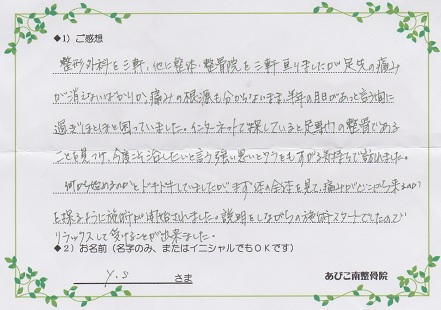 ◆1）ご感想
整形外科を三軒、他に整体・整骨院を三軒巡りましたが足先の痛み
が消えないばかりか痛みの根源も分からないまま、半年の月日があっと言う間に
過ぎほとほと困っていました。インターネットで探していると足専門の整骨である
ことを見つけ、今度こそ治したいと言う強い思いとワラをもすがる気持ちで訪れました。
何から始めるのかとドキドキしていましたがまず体の全体を見て、痛みがどこから来るのか
を探るように施術が開始されました。説明をしながらの施術スタートでしたので
リラックスして受けることが出来ました。
◆2）お名前（名字のみ、またはイニシャルでもＯＫです）
Y.S さま
あびこ南整骨院